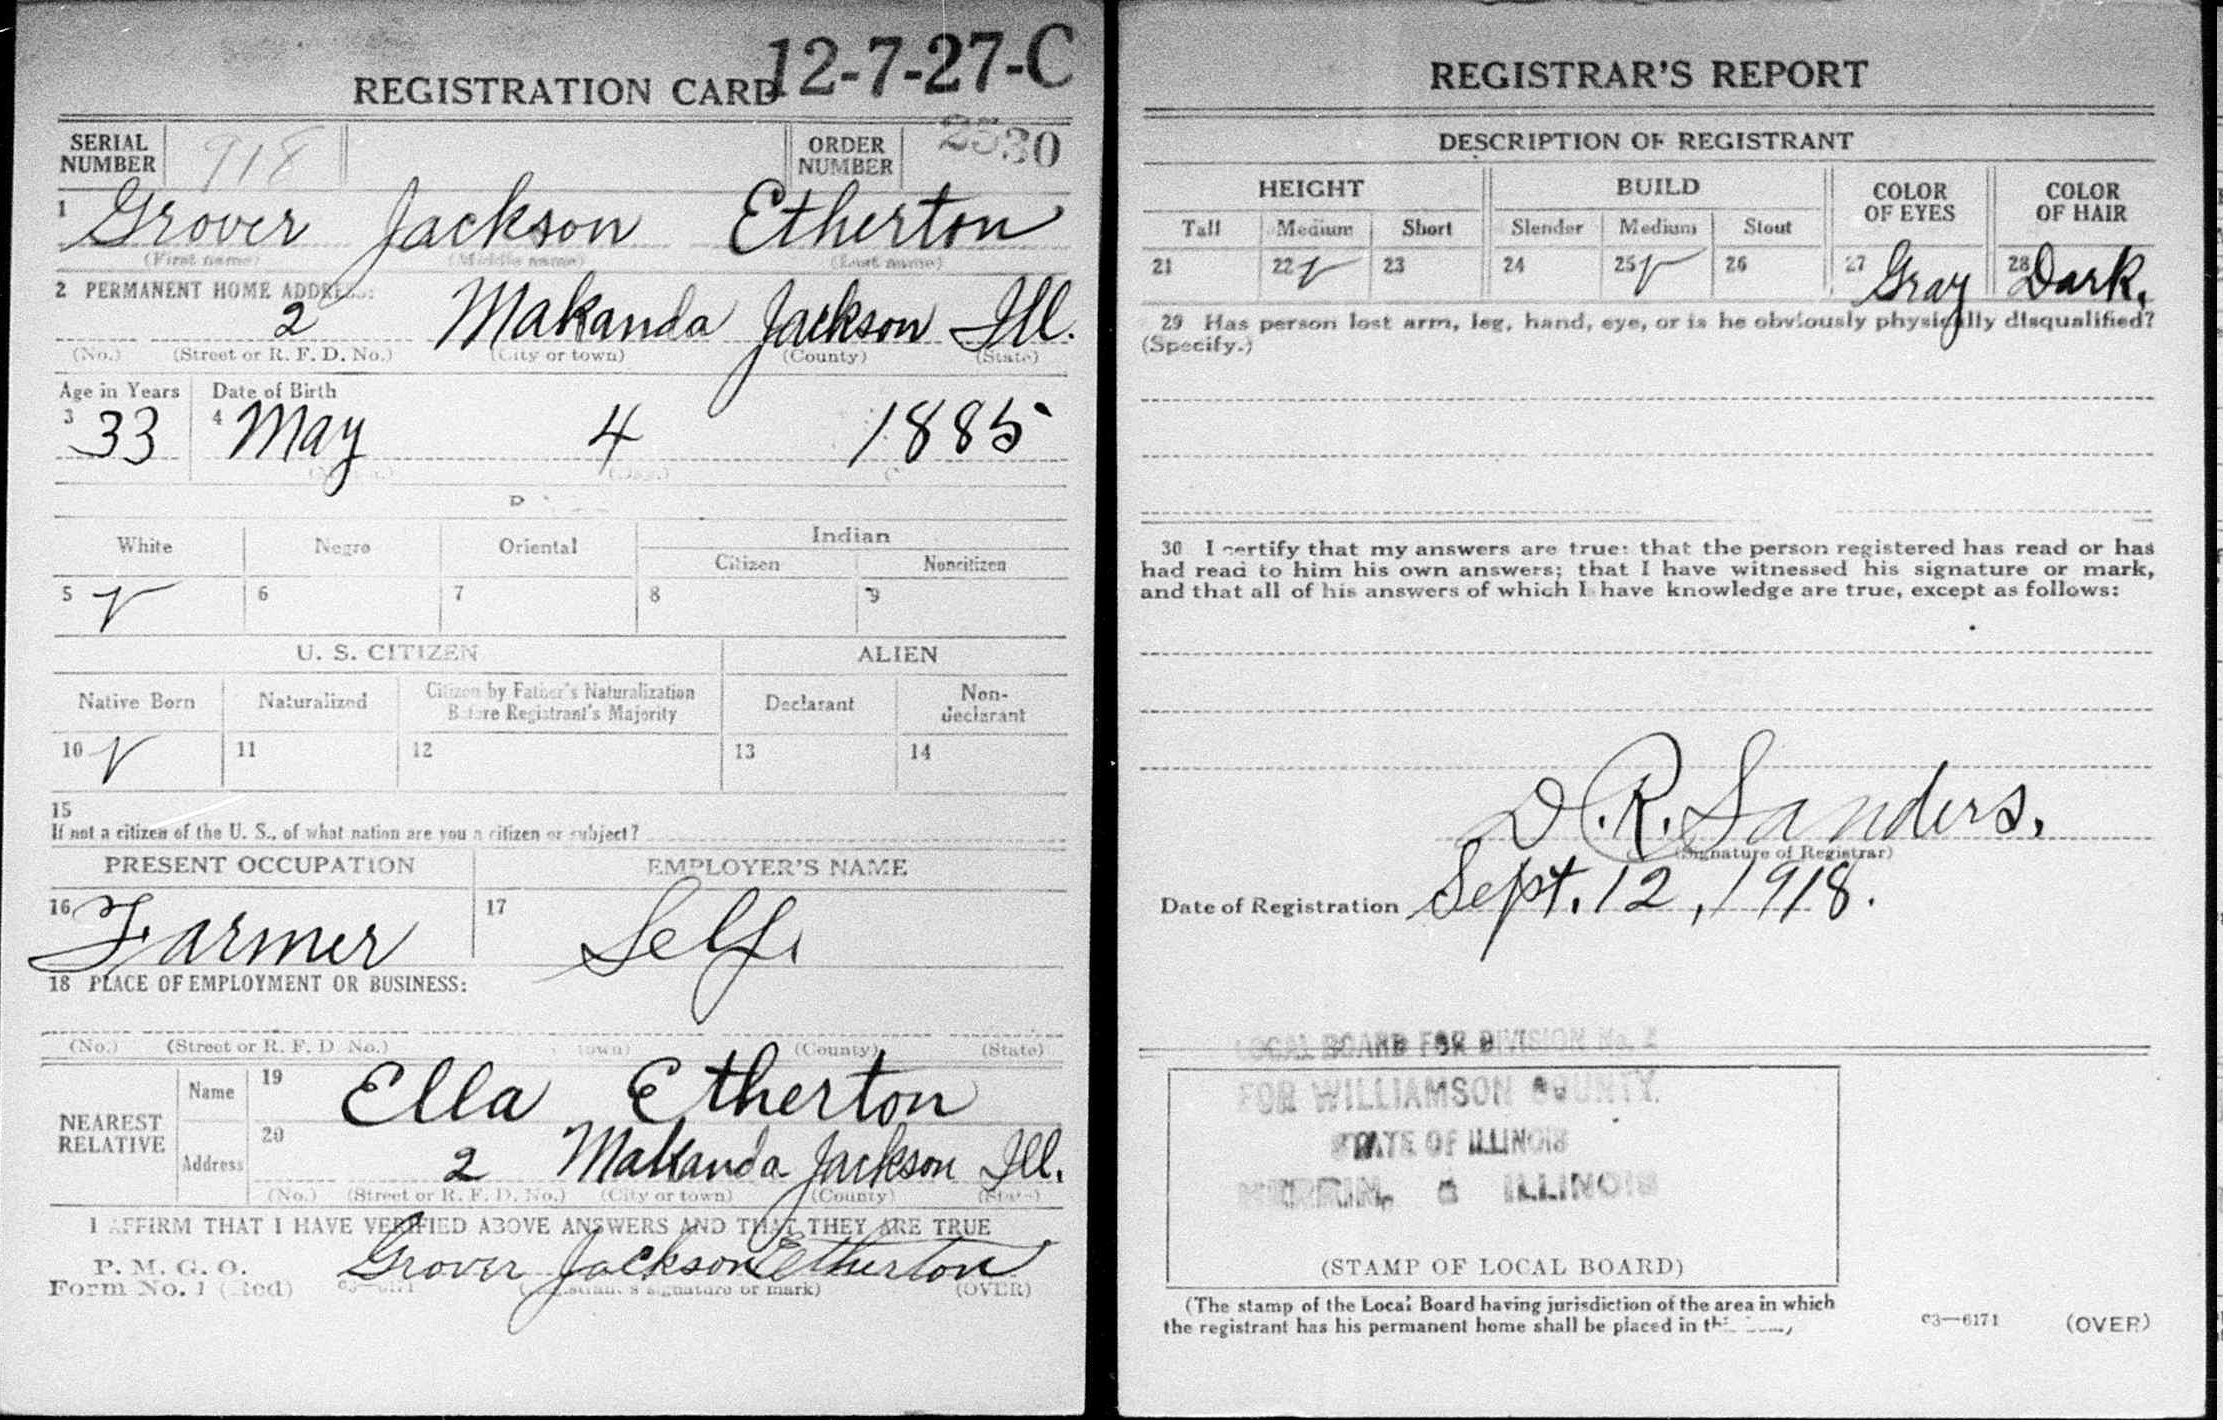 REGISTRATION CARD 12-7-27-C
SERIAL NUMBER 918 ORDER NUMBER 2530
1 Grover Jackson Etherton
(First name) (Middle name) (Last name)
2 PERMANENT HOME ADDRESS:
2 Makanda Jackson Ill.
(No.) (Street or R. F. D. No.) (City or town) (County) (State)
Age in Years Date of Birth
3 33 4 May 4 1885
(Day.)
White Negro Oriental Indian
Citizen Noncitizen
5 √ 6 7 8 9
U. S. CITIZEN ALIEN
Native Born Naturalized Citizen by Father's Naturalization Before Registrant's Majority Declarant Non-declarant
10 √ 11 12 13 14
15
If not a citizen of the U. S., of what nation are you a citizen or subject?
PRESENT OCCUPATION EMPLOYER'S NAME
16 Farmer 17 Self.
18 PLACE OF EMPLOYMENT OR BUSINESS:
(No.) (Street or R. F. D. No.) town) (County) (State)
NEAREST RELATIVE
Name 19 Ella Etherton
Address 20 2 Makanda Jackson Ill.
(No.) (Street or R. F. D. No.) (City or town) (County) (State)
I AFFIRM THAT I HAVE VERIFIED ABOVE ANSWERS AND THAT THEY ARE TRUE
P. M. G. O.
Form No. 1 (Red) Grover Jackson Etherton
(Registrant's signature or mark) (OVER)
REGISTRAR'S REPORT
DESCRIPTION OF REGISTRANT
HEIGHT BUILD COLOR OF EYES COLOR OF HAIR
Tall Medium Short Slender Medium Stout
21 22 √ 23 24 25 √ 26 27 Gray 28 Dark.
29 Has person lost arm, leg, hand, eye, or is he obviously physically disqualified?
(Specify.)
30 I certify that my answers are true; that the person registered has read or has
had read to him his own answers; that I have witnessed his signature or mark,
and that all of his answers of which I have knowledge are true, except as follows:
D. R. Sanders.
(Signature of Registrar)
Date of Registration Sept. 12, 1918.
LOCAL BOARD FOR DIVISION No. 2
FOR WILLIAMSON COUNTY.
STATE OF ILLINOIS
HERRIN, ILLINOIS
(STAMP OF LOCAL BOARD)
(The stamp of the Local Board having jurisdiction of the area in which
the registrant has his permanent home shall be placed in
c3—6171 (OVER)